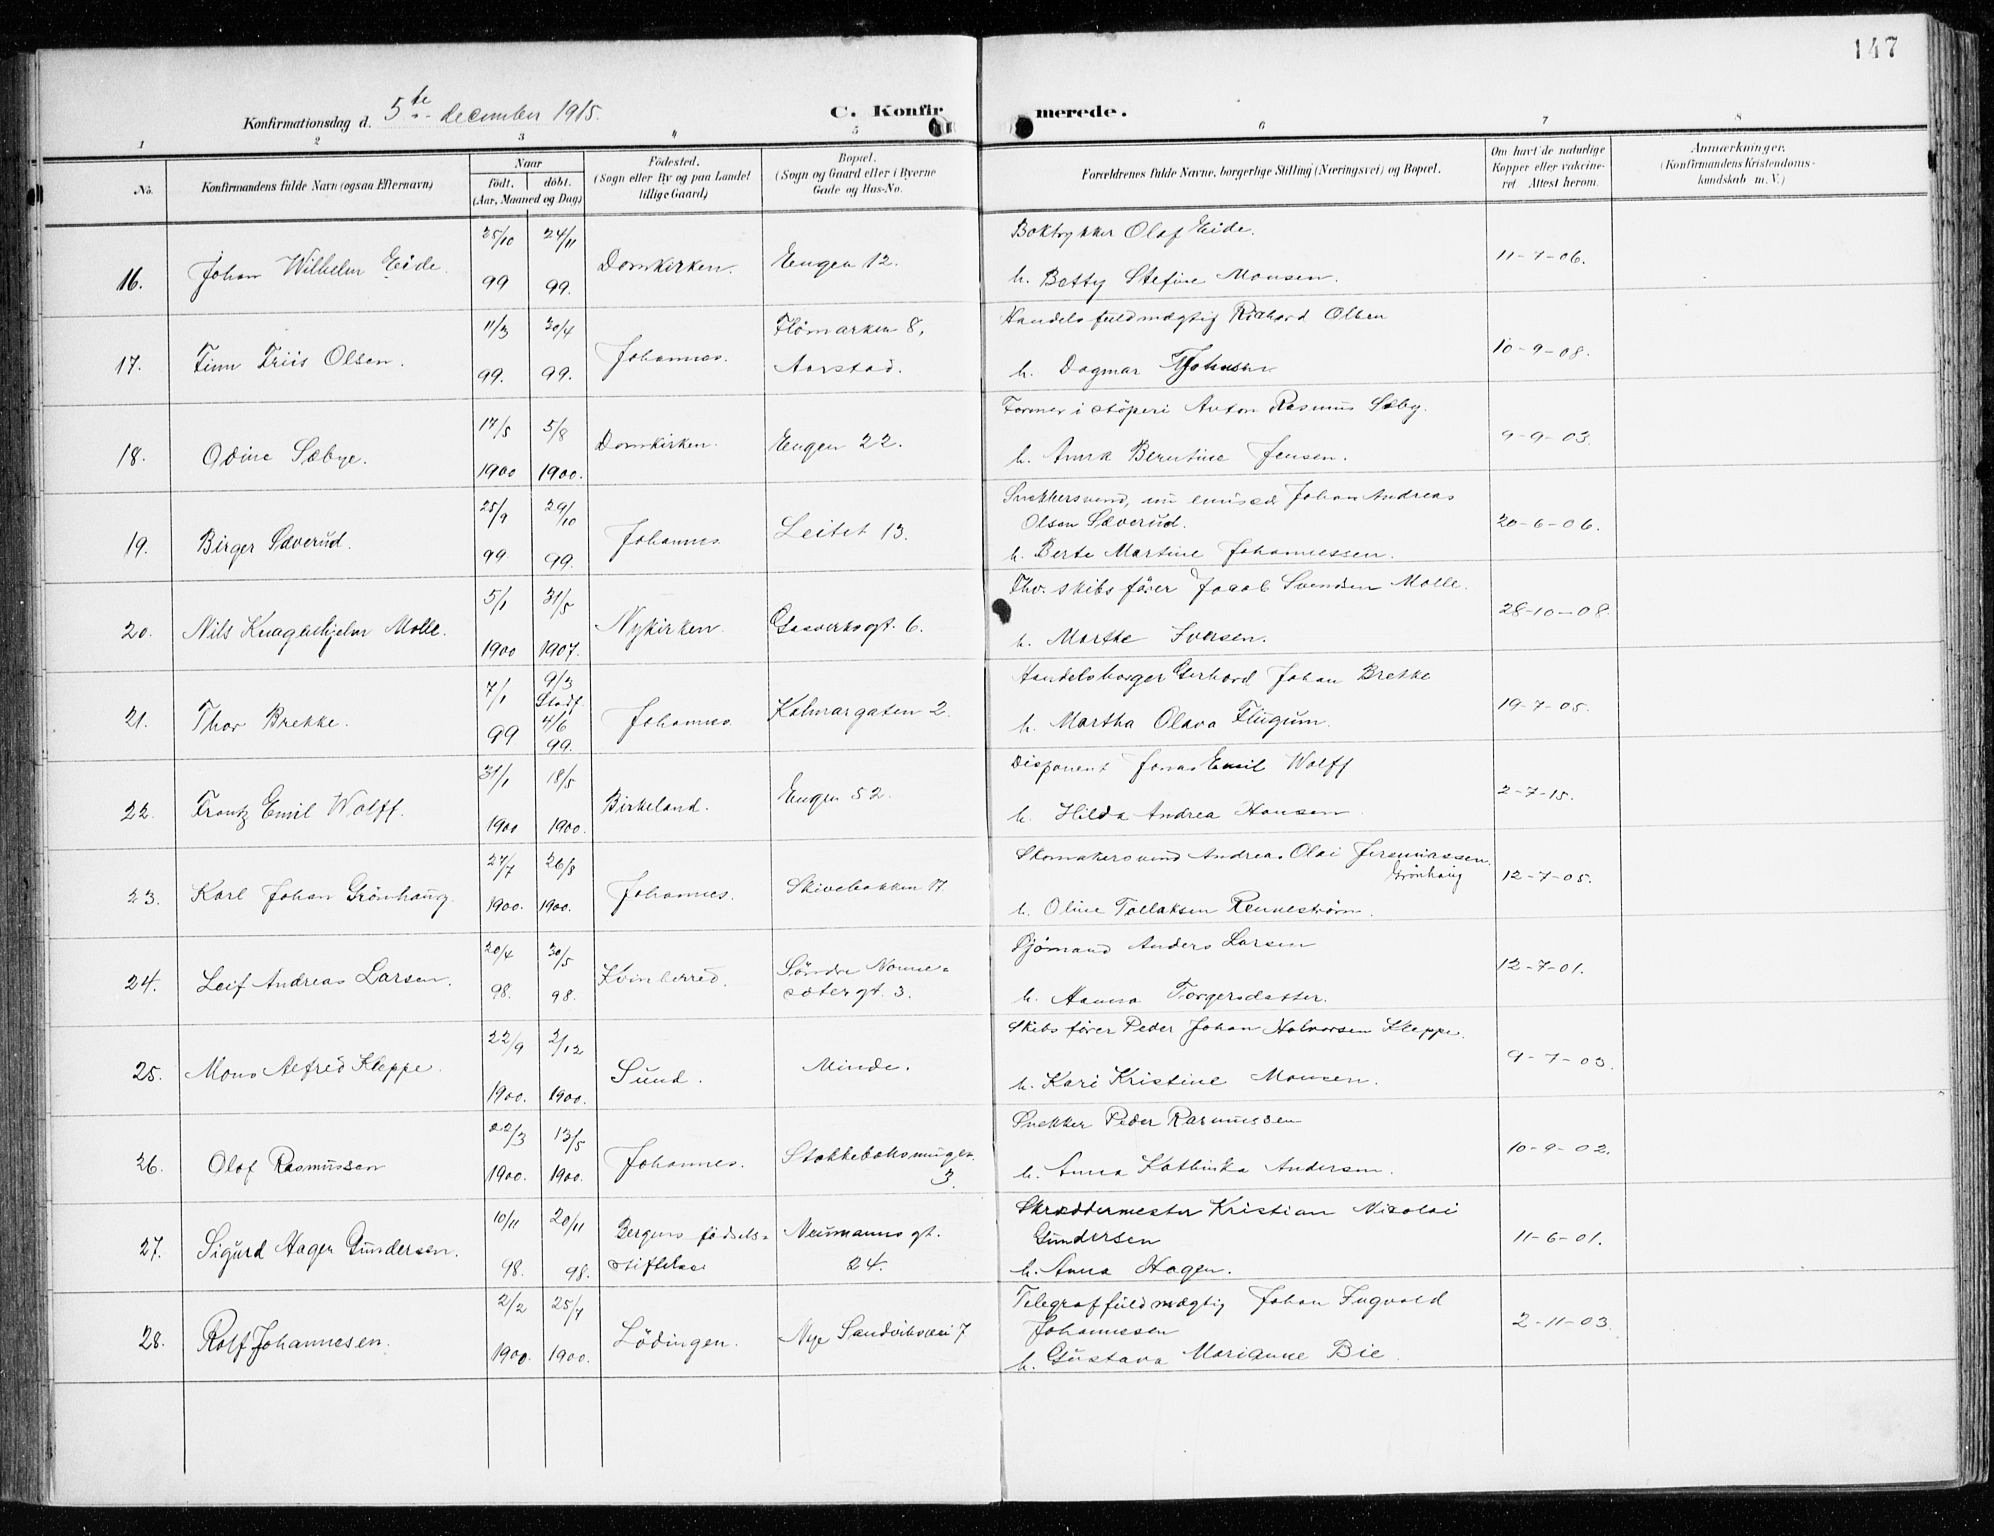 147
Konfirmationsdag d. 5te december 1915.
C. Konfirmerede.
1 2 3 4 5 6 7 8
No. Konfirmandens fulde Navn (ogsaa Efternavn) Naar født, døbt. (Aar, Maaned og Dag) Fødested. (Sogn eller By og paa Landet tillige Gaard) Bopæl. (Sogn og Gaard eller i Byerne Gade og Hus-No. Forældrenes fulde Navne, borgerlige Stilling (Næringsvei) og Bopæl. Om havt de naturlige Kopper eller vakcineret. Attest herom. Anmærkninger. (Konfirmandens Kristendomskundskab m. V.)
16. Johan Wilhelm Eide. 25/10 99 24/11 99. Domkirken. Engen 12. Boktrykker Olaf Eide.
h. Betty Stefine Monsen. 11-7-06.
17. Finn Friis Olsen. 11/3 99. 30/4 99. Johannes. Flömarken 8, Aarstad. Handelsfuldmægtig Richard Olsen
h. Dagmar Johnsen 10-9-08.
18. Odine Sæbye. 17/5 1900 5/8 1900. Domkirken. Engen 22. Former i stöperi Anton Rasmus Sæby.
h. Anna Berntine Jensen. 9-9-03.
19. Birger Sæverud. 25/9 99. 29/10 99. Johannes Leitet 13. Snekkersvend, nu emissær Johan Andreas
Olsen Sæverud.
h. Berte Martine Johannessen. 20-6-06.
20. Nils Knagenhjelm Molle. 5/1 1900 31/5 1907. Nykirken. Gasverksgt. 6. Fhv. skibsförer Jacob Svendsen Molle.
h. Marthe Iversen. 28-10-08.
21. Thor Brekke. 7/1 99 9/3 Stadf. 4/6 99. Johannes. Kalmargaten 2. Handelsborger Gerhard Johan Brekke
h. Martha Olava Flugum. 19-7-05.
22. Frantz Emil Wolff. 31/1 1900 18/5 1900. Birkeland. Engen 52. Disponent Jonas Emil Wolff
h. Hilda Andrea Hansen. 2-7-15.
23. Karl Johan Grönhaug. 27/7 1900. 26/8 1900. Johannes. Skivebakken 17 Skomakersvend Andreas Olai Jeremiassen Grönhaug
h. Oline Tollaksen Renneström. 12-7-05.
24. Leif Andreas Larsen. 20/4 98. 30/5 98. Kvinherred. Söndre Nonnesætergt. 3. Sjömand Anders Larsen
h. Hanna Torgersdatter. 12-7-01.
25. Mons Alfred Kleppe. 22/9 1900. 2/12 1900. Sund. Minde. Skibsförer Peder Johan Halvorsen Kleppe.
h. Kari Kristine Monsen. 9-7-03.
26. Olaf Rasmussen 22/3 1900. 13/5 1900. Johannes. Stakkebaksmuget 3. Snekker Peder Rasmussen
h. Anna Kathinka Andersen. 10-9-02.
27. Sigurd Hagen Gundersen. 10/11 98. 20/11 98. Bergens födselsstiftelse Neumannsgt. 24. Skræddermester Kristian Nicolai
Gundersen
h. Anna Hagen. 11-6-01.
28. Rolf Johannesen. 2/2 1900. 25/7 1900. Lödingen. Nye Sandviksvei 7 Telegraffuldmægtig Johan Ingvald
Johannesen
h. Gustava Marianne Bie. 2-11-03.